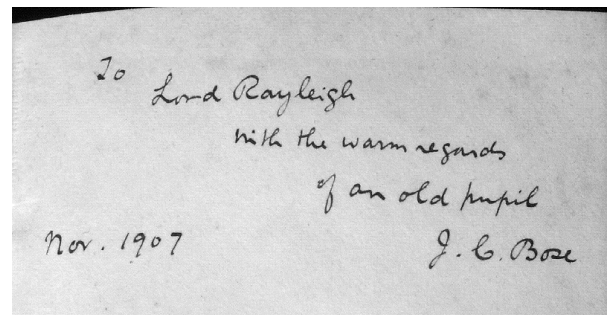 To
Lord Rayleigh
with the warm regards
of an old pupil
Nov. 1907 J. C. Bose